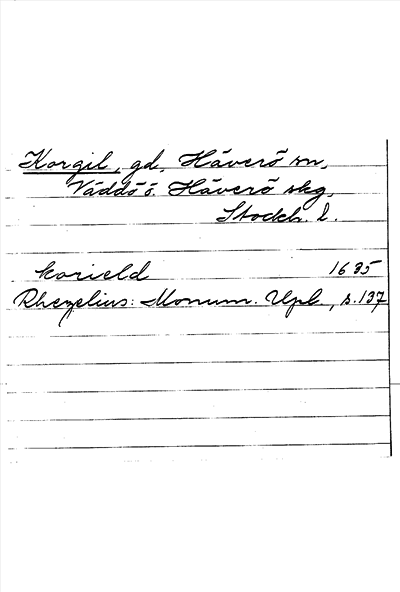 Korgil, gd, Häverö sn,
Väddö ö. Häverö skg,
Stockh. l.
korield 1635
Rhezelius: Monum. Upl., s. 137